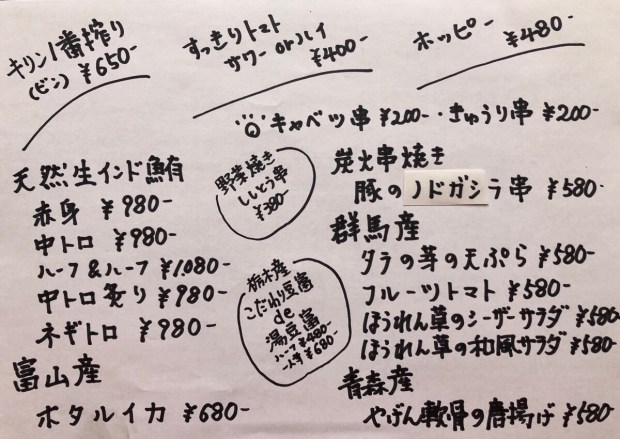 キリン一番搾り
(ビン) ¥650-
すっきりトマト
サワー orハイ
¥400-
ホッピー ¥480-
キャベツ串 ¥200-・きゅうり串 ¥200-
天然生インド鮪
赤身 ¥980-
中トロ ¥980-
ハーフ&ハーフ ¥1080-
中トロ炙り ¥980-
ネギトロ ¥980-
富山産
ホタルイカ ¥680-
野菜焼き
ししとう串
¥380-
栃木産
こだわり豆富
de
湯豆富
ハーフ ¥480-
一人手 ¥680-
炭火串焼き
豚のノドガシラ串 ¥580-
群馬産
タラの芽の天ぷら ¥580-
フルーツトマト ¥580-
ほうれん草のシーザーサラダ ¥580-
ほうれん草の和風サラダ ¥580-
青森産
やげん軟骨の唐揚げ ¥580-